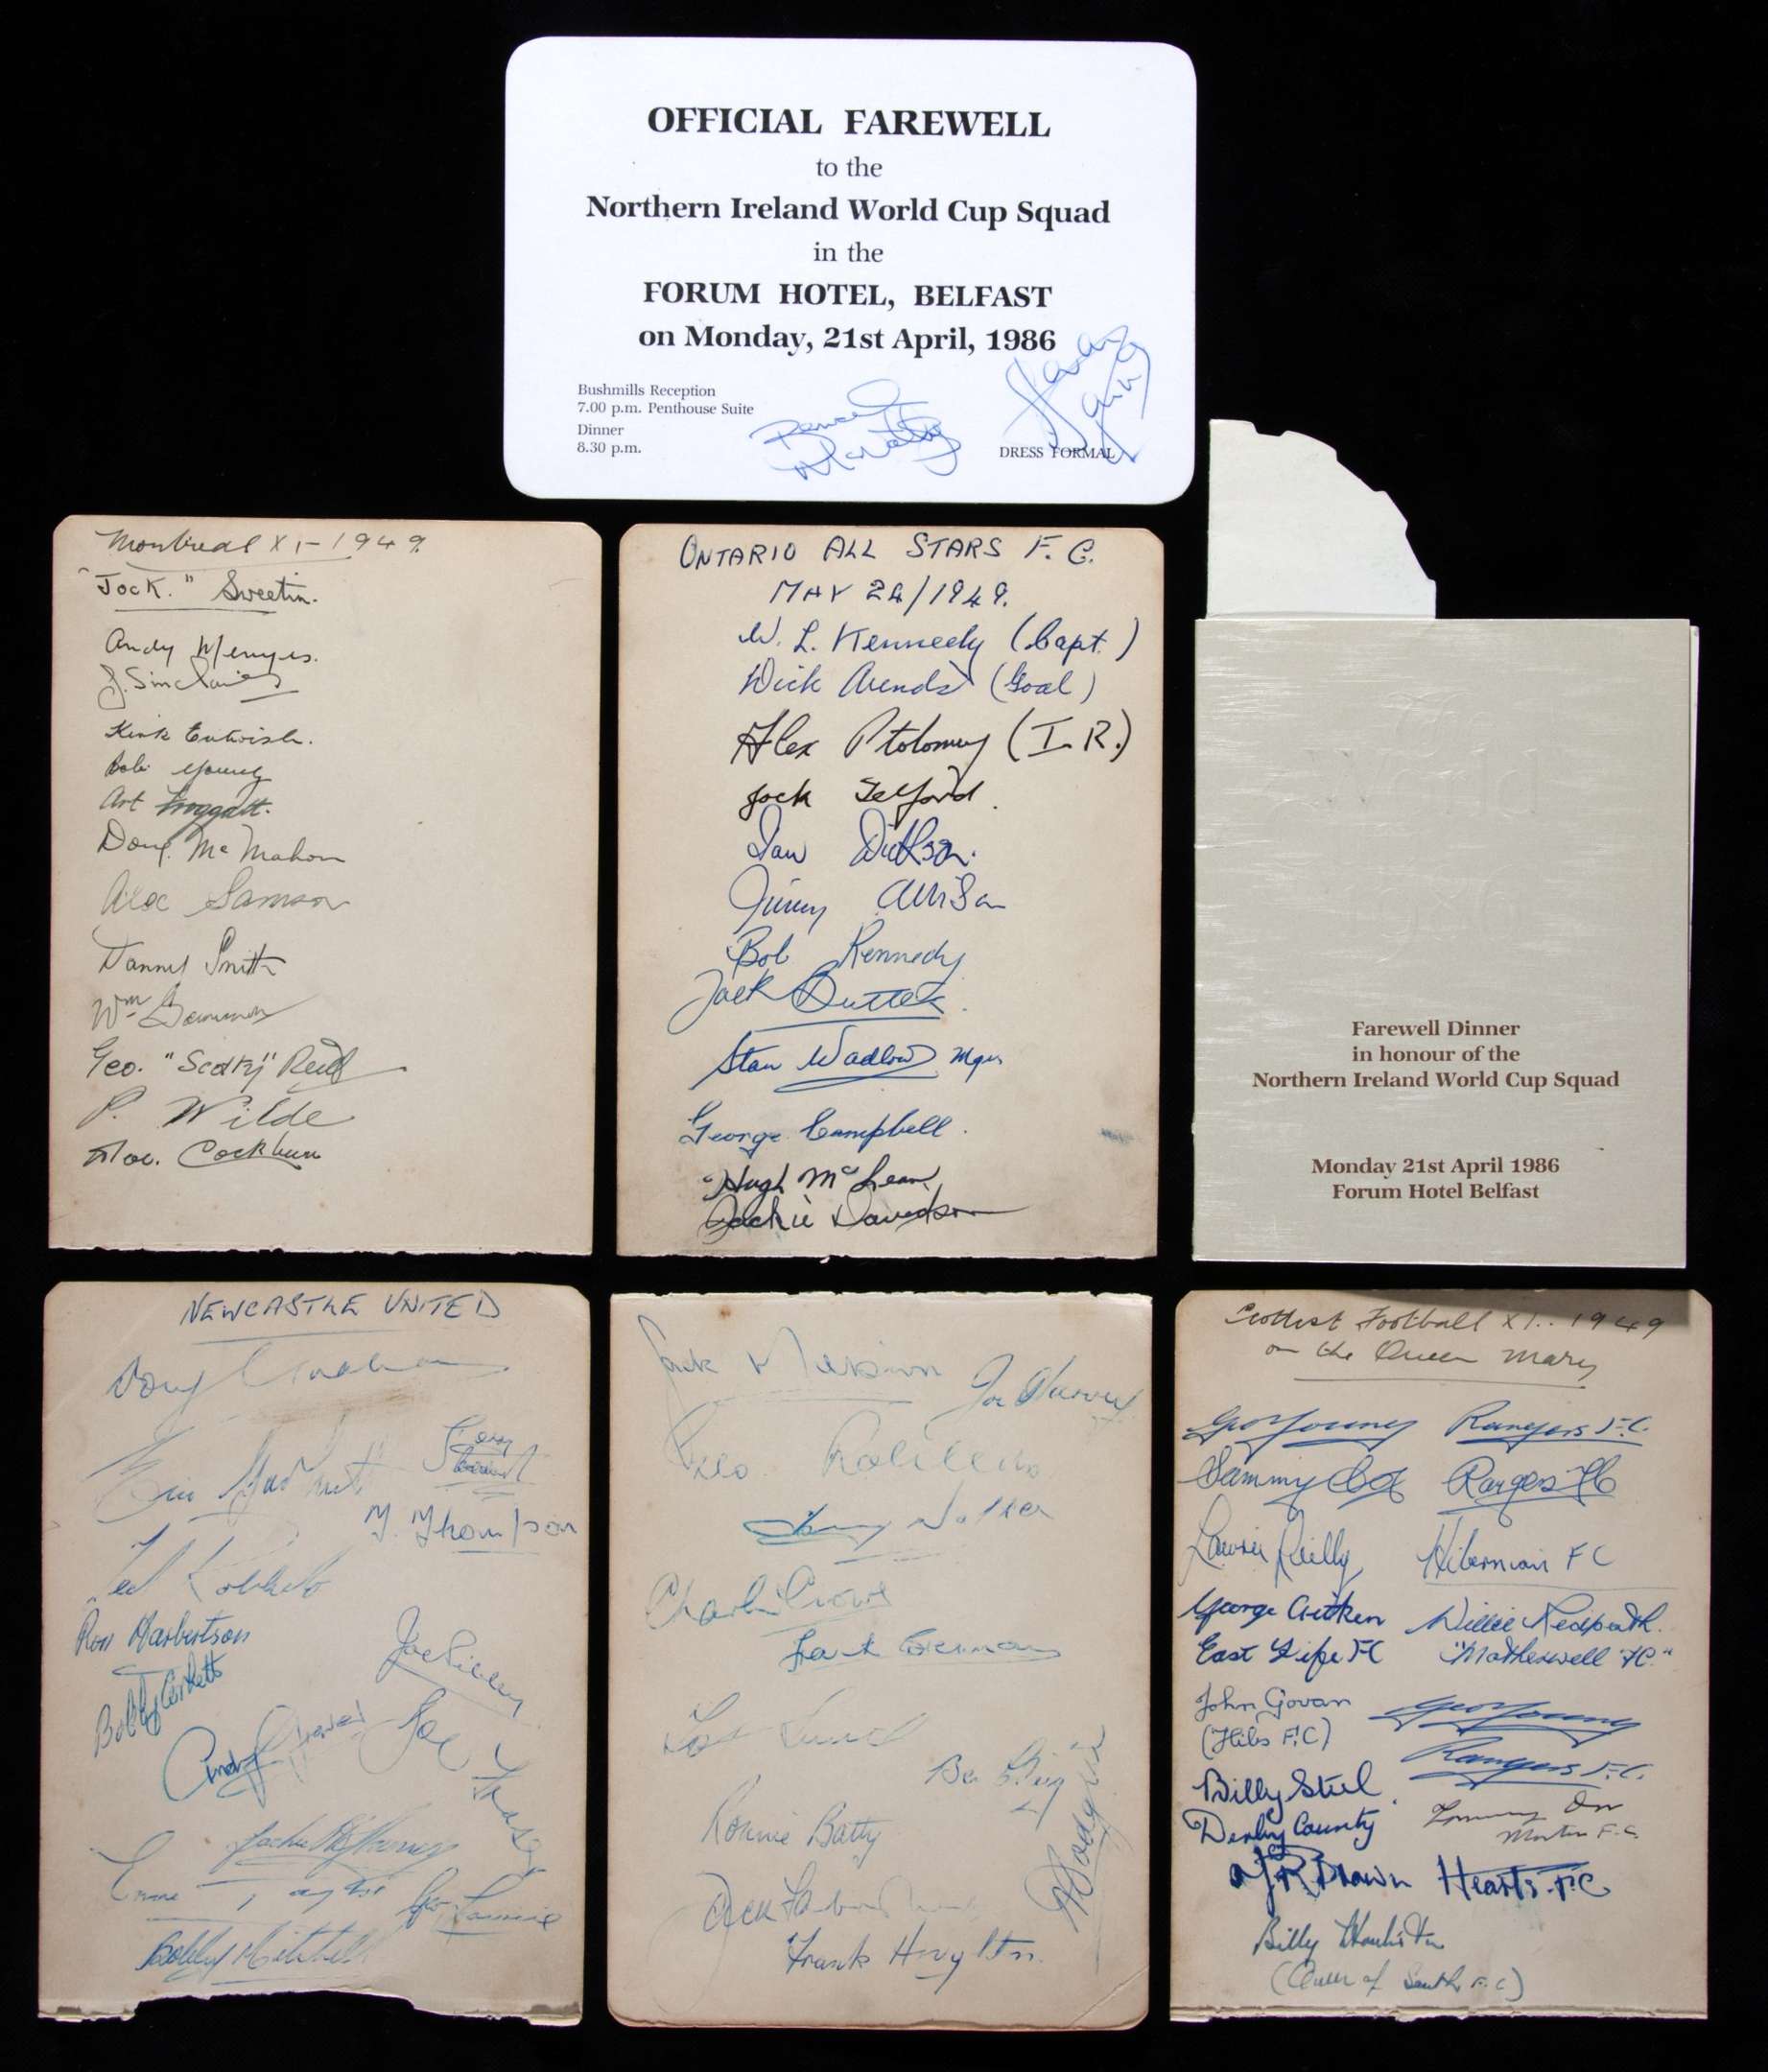 OFFICIAL FAREWELL
to the
Northern Ireland World Cup Squad
in the
FORUM HOTEL, BELFAST
on Monday, 21st April, 1986
Bushmills Reception
7.00 p.m. Penthouse Suite
Dinner
8.30 p.m.
DRESS FORMAL
Montreal XI - 1949.
"Jock." Sweetin.
Andy
J. Sinclair
Kirk Entwisle.
Bob Young
Art Froggatt.
Doug. Mc Mahon
Alec Samson
Danny Smith
Wm
Geo. "Scotty" Reid
P. Wilde
Cockburn
ONTARIO ALL STARS F. C.
MAY 24/1949.
W. L. Kennedy (Capt.)
Dick Arends (Goal)
Alex Ptolomey (I. R.)
Jock Telford.
Ian Dickson.
Jimmy
Bob Kennedy
Jack Butter
Stan Wadlow Mgr.
George Campbell.
Hugh McLean
Jackie Davidson
The
World
Farewell Dinner
in honour of the
Northern Ireland World Cup Squad
Monday 21st April 1986
Forum Hotel Belfast
NEWCASTLE UNITED
Doug Graham
T. Thompson
Ted Robledo
Ron Harbertson
Bobby Corbett
Andy Graver
Jackie Milburn
Ernie Taylor
Geo Lowrie
Bobby Mitchell
Jack
Joe Harvey
Geo. Robledo
Tommy Walker
Charlie Crowe
Frank Brennan
Ronnie Batty
Jack Fairbrother
Frank Houghton.
Scottish Football XI.. 1949
on the Queen Mary
Geo Young Rangers F.C.
Sammy Cox Rangers FC
Lawrie Reilly Hibernian FC
George Aitken Willie Redpath.
East Fife FC "Motherwell FC."
John Govan Geo Young
(Hibs F.C) Rangers F.C.
Billy Steel Tommy Orr
Derby County Morton F.C.
A R Brown Hearts. F.C
Billy Houliston
(Queen of South F.C)